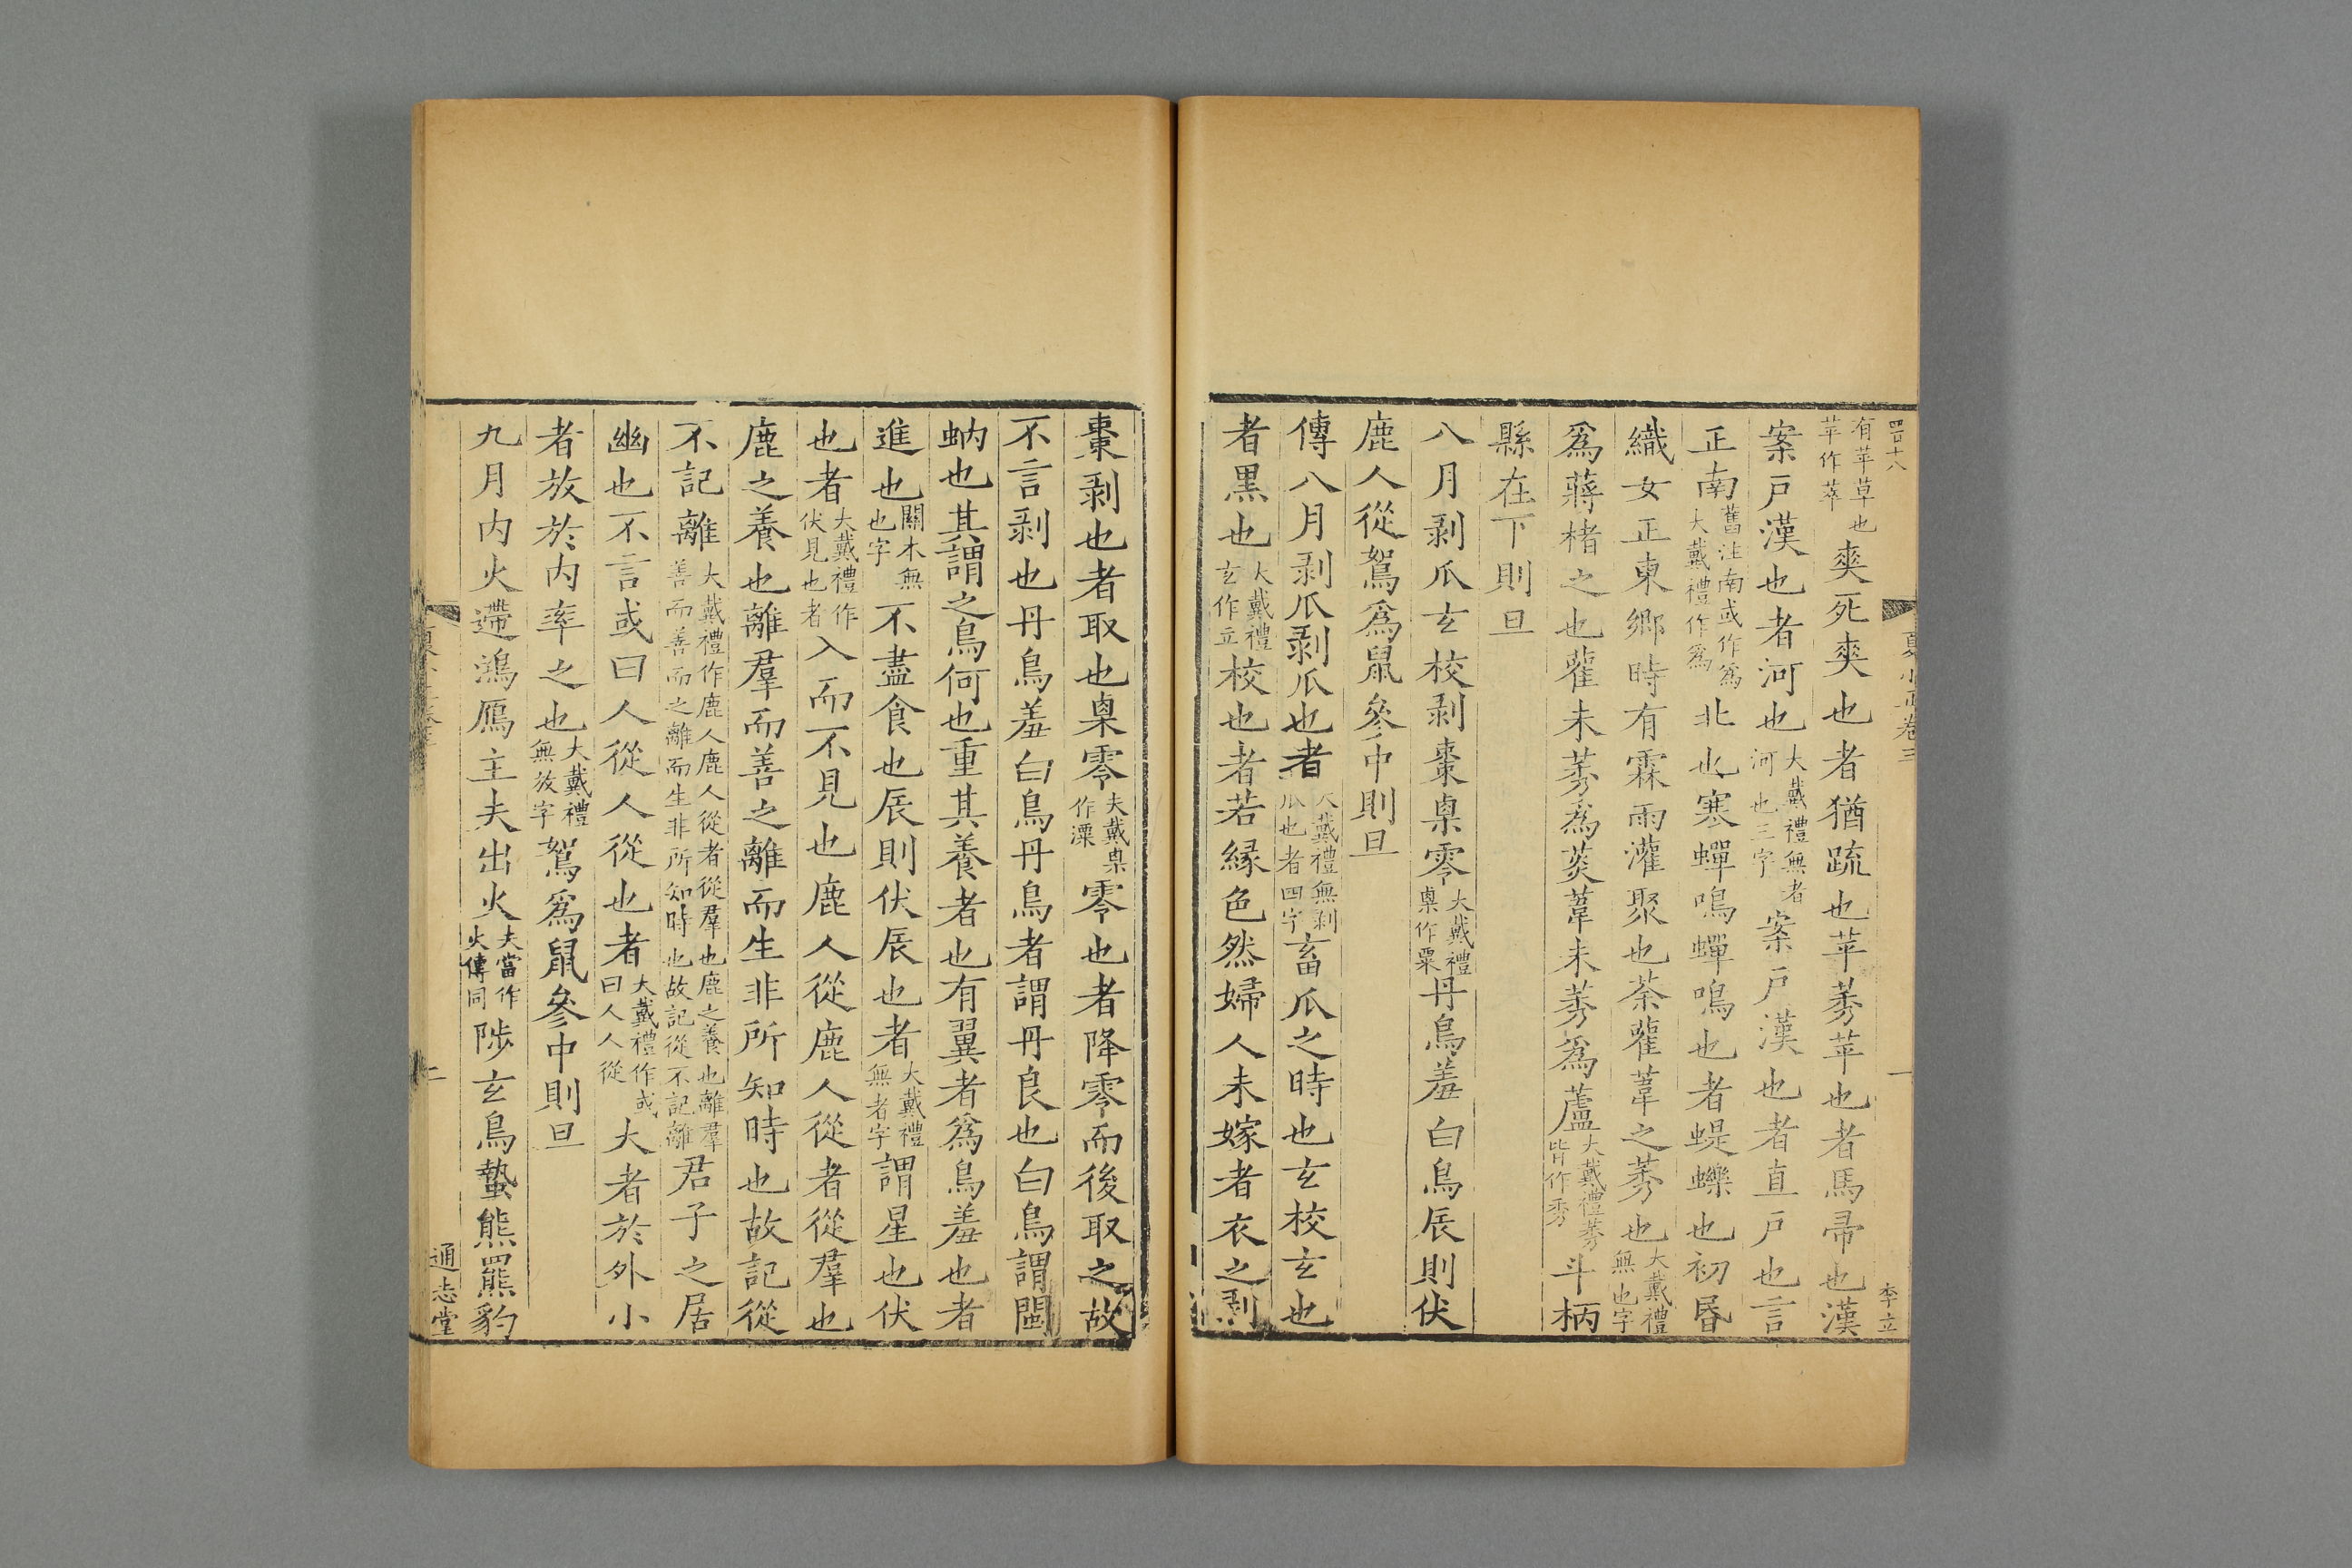 四百十八
夏小正卷三
一
李立
有苹草也苹作萃爽死爽也者猶疏也苹莠苹也者馬帚也漢
案戸漢也者河也大戴禮無者河也三字案戸漢也者直戸也言
正南舊注南或作爲大戴禮作爲北也寒蟬鳴蟬鳴也者蝭蠑也初昬
織女正東鄉時有霖雨灌聚也荼雚葦之莠也大戴禮無也字
爲蔣楮之也雚未莠爲菼葦未莠爲蘆大戴禮莠皆作秀斗柄
縣在下則旦
八月剥瓜玄校剥棗㮚零大戴禮㮚作粟丹鳥羞白鳥辰則伏
鹿人從鴽爲鼠參中則旦
傳八月剥瓜剥瓜也者大戴禮無剥瓜也者四字畜瓜之時也玄校玄也
者黒也大戴禮玄作立校也者若縁色然婦人未嫁者衣之剥
棗剥也者取也㮚零大戴㮚作凓零也者降零而後取之故
不言剥也丹鳥羞白鳥丹鳥者謂丹良也白鳥謂閩
蚋也其謂之鳥何也重其養者也有翼者爲鳥羞也者
進也關本無也字不盡食也辰則伏辰也者大戴禮無者字謂星也伏
也者大戴禮作伏見也者入而不見也鹿人從鹿人從者從羣也
鹿之養也離羣而善之離而生非所知時也故記從
不記離大戴禮作鹿人鹿人從者從羣也鹿之養也離羣善而善而之離而生非所知時也故記從不記離君子之居
幽也不言或曰人從人從也者大戴禮作或曰人人從大者於外小
者放於内率之也大戴禮無放字鴽爲鼠參中則旦
九月内火遰鴻鴈主夫出火夫當作火傳同陟玄鳥蟄熊羆豹
二
通志堂